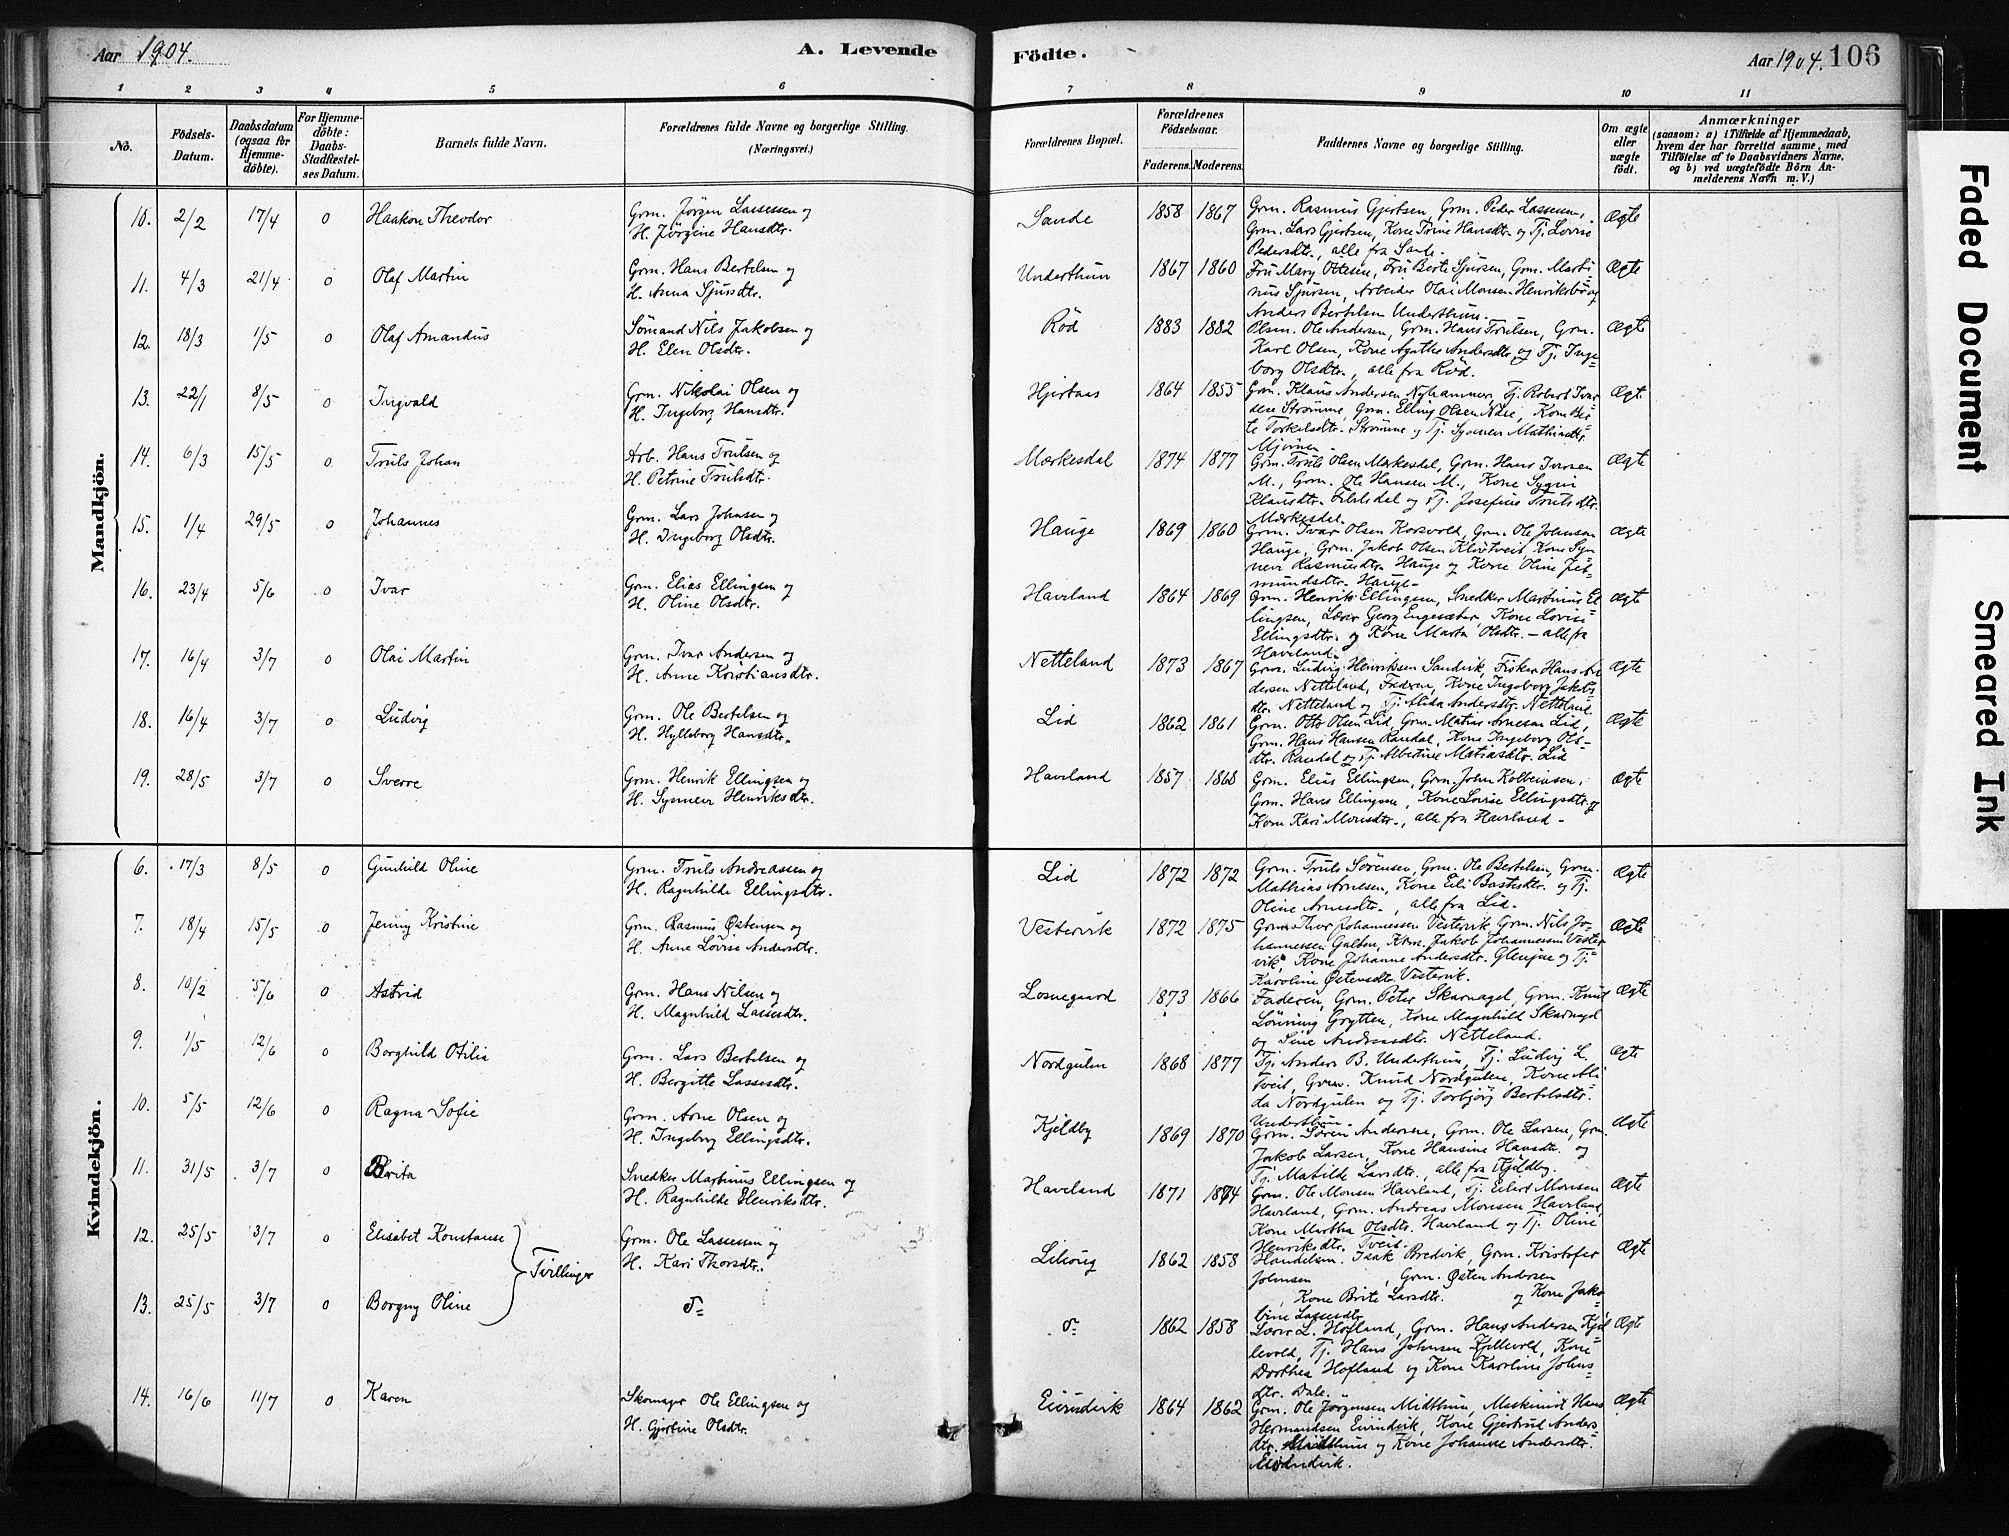 Aar 1904.
A. Levende Födte.
Aar 1904. 106
1 2 3 4 5 6 7 8 9 10 11
No.
Födsels-Datum.
Daabsdatum (ogsaa for Hjemme-döbte).
For Hjemme-döbte: Daabs-Stadfæstel-ses Datum.
Barnets fulde Navn.
Forældrenes fulde Navne og borgerlige Stilling. (Næringsvei.)
Forældrenes Bopæl.
Forældrenes Födselsaar.
Faderens. Moderens.
Faddernes Navne og borgerlige Stilling.
Om ægte eller uægte födt.
Anmærkninger
(saasom: a) i Tilfælde af Hjemmedaab,
hvem der har forrettet samme, med
Tilföielse af to Daabsvidners Navne,
og b) ved uægtefödte Börn An-
melderens Navn m. V.)
Mandkjön.
10. 2/2 17/4 0 Haakon Theodor
Grm. Jörgen Lassesen og
H. Jörgine Hansdtr.
Sande 1858 1867
Grm. Rasmus Gjertsen, Grm. Peder Lassesen,
Grm. Lars Gjertsen, Kone Trine Hansdtr. og Tj. Lovise
Pedersdtr., alle fra Sande.
Ægte
11. 4/3 21/4 0 Olaf Martin
Grm. Hans Bertelsen og
H. Anna Sjursdtr.
Underthun 1867 1860
Fru Mary Ottesen, Fru Berte Sjursen, Grm. Marti-
nus Sjursen, Arbeider Olai Monsen Henriksbö og
Anders Bertelsen Underthun.
Ægte
12. 18/3 1/5 0 Olaf Amandus
Sömand Nils Jakobsen og
H. Elen Olsdtr.
Röd 1883 1882
Olsm. Ole Andersen, Grm. Hans Trulsen, Grm.
Karl Olsen, Kone Agathe Andersdtr. og Tj. Inge-
borg Olsdtr., alle fra Röd.
Ægte
13. 22/1 8/5 0 Ingvald
Grm. Nikolai Olsen og
H. Ingeborg Hansdtr.
Hjertaas 1864 1855
Grm. Klaus Andersen Nyhammer, Tj. Robert Ivar-
sen Strömme, Grm. Elling Olsen Näse, Kone Ber-
te Torkelsdtr. Strömme og Tj. Synnev Mathiasdtr.
Mjömen.
Ægte
14. 6/3 15/5 0 Truls Johan
Arb. Hans Trulsen og
H. Petrine Trulsdtr.
Mærkesdal 1874 1877
Grm. Truls Olsen Mærkesdal, Grm. Hans Iversen
M., Grm. Ole Hansen M., Kone Sygni
Klausdtr. og Tj. Josefine Trulsdtr.
Mærkesdal.
Ægte
15. 1/4 29/5 0 Johannes
Grm. Lars Johnsen og
H. Ingeborg Olsdtr.
Hauge 1869 1860
Grm. Ivar Olsen Korsvold, Grm. Ole Johnson
Hauge, Grm. Jakob Olsen Klövtveit, Kone Syn-
nevi Rasmusdtr. Hauge og Kone Oline Jet-
mundsdtr. Hauge.
Ægte
16. 23/4 5/6 0 Ivar
Grm. Elias Ellingsen og
H. Oline Olsdtr.
Haveland 1864 1869
Grm. Henrik Ellingsen, Snedker Martinus El-
lingsen, Lærer Georg Engesæter, Kone Lovise
Ellingsdtr. og Kone Marta Olsdtr. – alle fra
Haveland.
Ægte
17. 16/4 3/7 0 Olai Martin
Grm. Ivar Andersen og
H. Anne Kristiansdtr.
Netteland 1873 1867
Grm. Ludvig Henriksen Sandvik, Fisker Hans An-
dersen Netteland, Faderen, Kone Ingeborg Jakobs-
dtr. Netteland og Tj. Alida Andersdtr. Netteland
Ægte
18. 16/4 3/7 0 Ludvig
Grm. Ole Bertelsen og
H. Hylleborg Hansdtr.
Lid 1862 1861
Grm. Otto Olsen Lid, Grm. Matias Arnesen Lid,
Grm. Hans Hansen Randal, Kone Ingeborg Ols-
dtr. Randal og Tj. Albertine Matiasdtr. Lid
Ægte
19. 28/5 3/7 0 Sverre
Grm. Henrik Ellingsen og
H. Synnev Henriksdtr.
Haveland 1857 1868
Grm. Elias Ellingsen, Grm. John Kolbeinsen,
Grm. Hans Ellingsen, Kone Lovise Ellingsdtr. og
Kone Kari Monsdtr., alle fra Haveland.
Ægte
Kvindekjön.
6. 17/3 8/5 0 Gunhild Oline
Grm. Truls Andreassen og
H. Ragnhilde Ellingsdtr.
Lid 1872 1872
Grm. Truls Sörensen, Grm. Ole Bertelsen, Grm.
Mathias Arnesen, Kone Eli Bastesdtr. og Tj.
Oline Arnesdtr., alle fra Lid.
Ægte
7. 18/4 15/5 0 Jenny Kristine
Grm. Rasmus Østensen og
H. Anne Lovise Andersdtr.
Vestervik 1872 1875
Grm. Thor Johannessen Vestervik, Grm. Nils Jo-
hannessen Galten, Grm. Jakob Johannessen Vester-
vik, Kone Johanne Andersdtr. Glenjne og Tj.
Karoline Østensdtr. Vestervik.
Ægte
8. 10/2 5/6 0 Astrid
Grm. Hans Nilsen og
H. Magnhild Lassesdtr.
Losnegaard 1873 1866
Faderen, Grm. Peter Skarnagel, Grm. Knut
Lönning Grytten, Kone Magnhild Skarnagel
og Sine Andreasdtr. Netteland.
Ægte
9. 1/5 12/6 0 Borghild Otilia
Grm. Lars Bertelsen og
H. Bergitte Lassesdtr.
Nordgulen 1868 1877
Tj. Anders B. Underthun, Tj. Ludvig L.
Tveit, Grm. Knud Nordgulen, Kone Ali-
da Nordgulen og Tj. Torbjörg Bertelsdtr.
Underthun.
Ægte
10. 5/5 12/6 0 Ragna Sofie
Grm. Arne Olsen og
H. Ingeborg Ellingsdtr.
Kjeldby 1869 1870
Grm. Sören Andersen, Grm. Ole Larsen, Grm.
Jakob Larsen, Kone Hansine Hansdtr. og
Tj. Matilde Larsdtr., alle fra Kjeldby.
Ægte
11. 31/5 3/7 0 Brita
Snedker Martinus Ellingsen og
H. Ragnhilde Henriksdtr.
Haveland 1871 1874
Grm. Ole Monsen Haveland, Tj. Eilert Monsen
Haveland, Grm. Andreas Monsen Haveland,
Kone Martha Olsdtr. Haveland og Tj. Oline
Henriksdtr. Tveit.
Ægte
12. 25/5 3/7 0 Elisabet Konstanse
Tvillinger
Grm. Ole Lassesen og
H. Kari Thorsdtr.
1862 1858
Handelsm. Isak Bredvik, Grm. Kristofer
Johnsen, Grm. Østen Andersen
, Kone Brite Larsdtr. og Kone Jako-
bine Lassesdtr.
Ægte
13. 25/5 3/7 0 Borgny Oline
1862 1858
Lærer L. Hofland, Grm. Hans Andersen Kjel-
levold, Tj. Hans Johnsen Kjellevold, Kone
Dorthea Hofland og Kone Karoline Johns-
dtr. Dale.
Ægte
14. 16/6 11/7 0 Karen
Skomager Ole Ellingsen og
H. Gjertine Olsdtr.
Eivindvik 1864 1862
Grm. Ole Jörgensen Midthun, Maskinist Hans
Hermandsen Eivindvik, Kone Gjertrud Anders-
dtr. Midthun og Kone Johanne Andersdtr.
Eivindvik.
Ægte
Faded Document
Smeared Ink